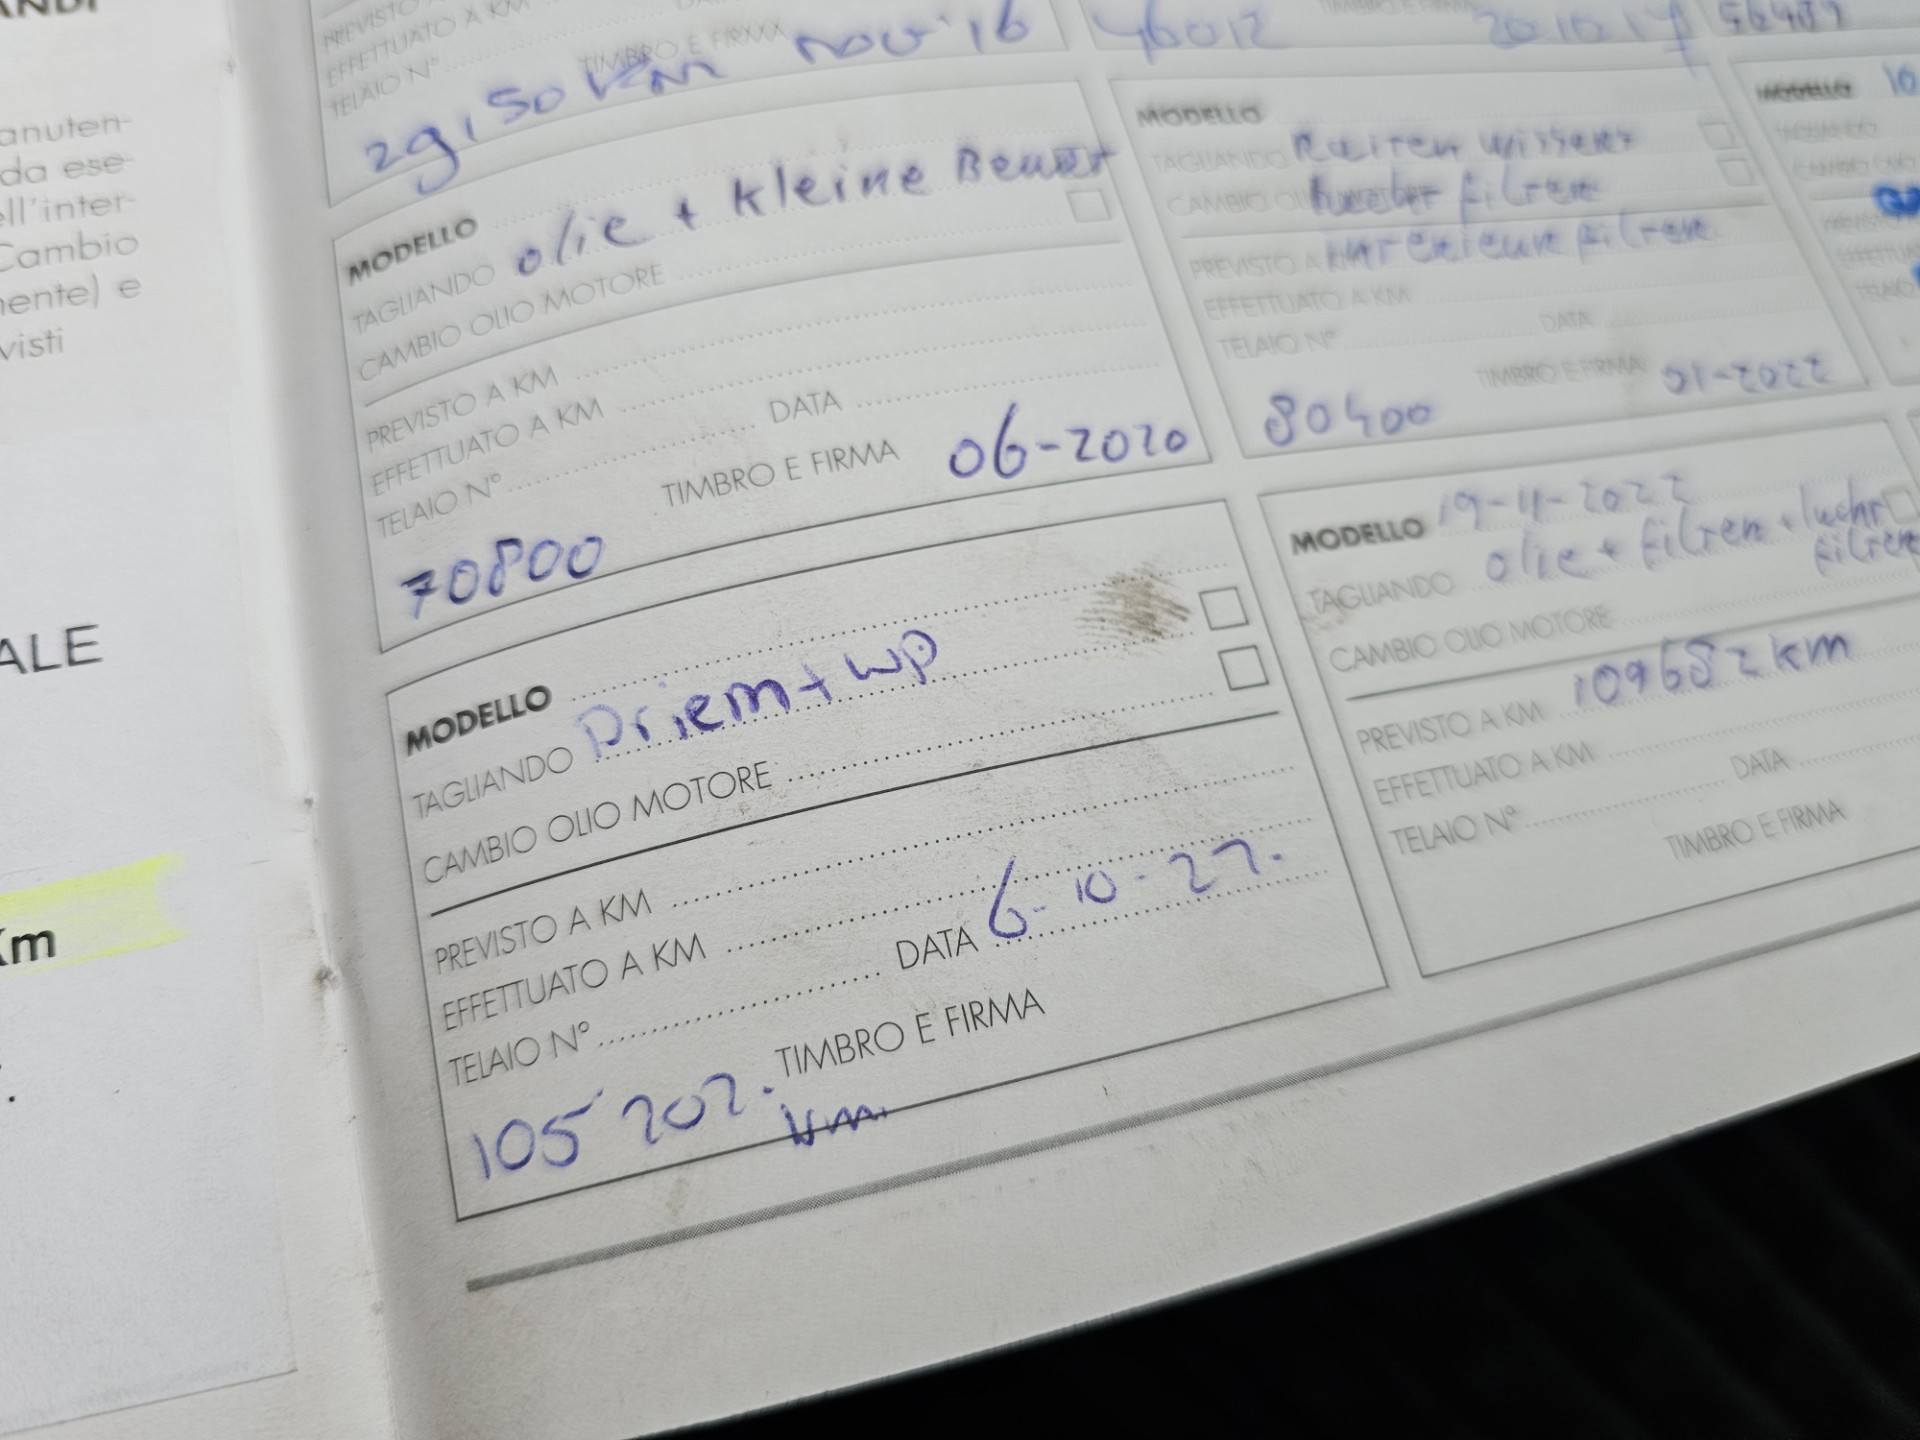 ANDI
anuten-
da ese-
ell'inter-
Cambio
nente) e
visti
ALE
Km
PREVISTO A KM
EFFETTUATO A KM
TELAIO N°
TIMBRO E FIRMA
29150 km nov '16
46012
20 10 17
MODELLO
TAGLIANDO olie + kleine Beurt
CAMBIO OLIO MOTORE
PREVISTO A KM
EFFETTUATO A KM
TELAIO N° DATA
TIMBRO E FIRMA 06-2020
70800
MODELLO
TAGLIANDO Ruiten wissers
CAMBIO filter
PREVISTO A KM interieur filter
EFFETTUATO A KM
TELAIO N° DATA
TIMBRO E FIRMA 01-2022
80400
MODELLO 10
TAGLIANDO
MODELLO
TAGLIANDO Driem + wp
CAMBIO OLIO MOTORE
PREVISTO A KM
EFFETTUATO A KM
TELAIO N° DATA 6-10-22.
TIMBRO E FIRMA
105 202. km.
MODELLO 19-11-2022
TAGLIANDO olie + filter + lucht
filter
CAMBIO OLIO MOTORE
109682 km
PREVISTO A KM
EFFETTUATO A KM
TELAIO N° DATA
TIMBRO E FIRMA